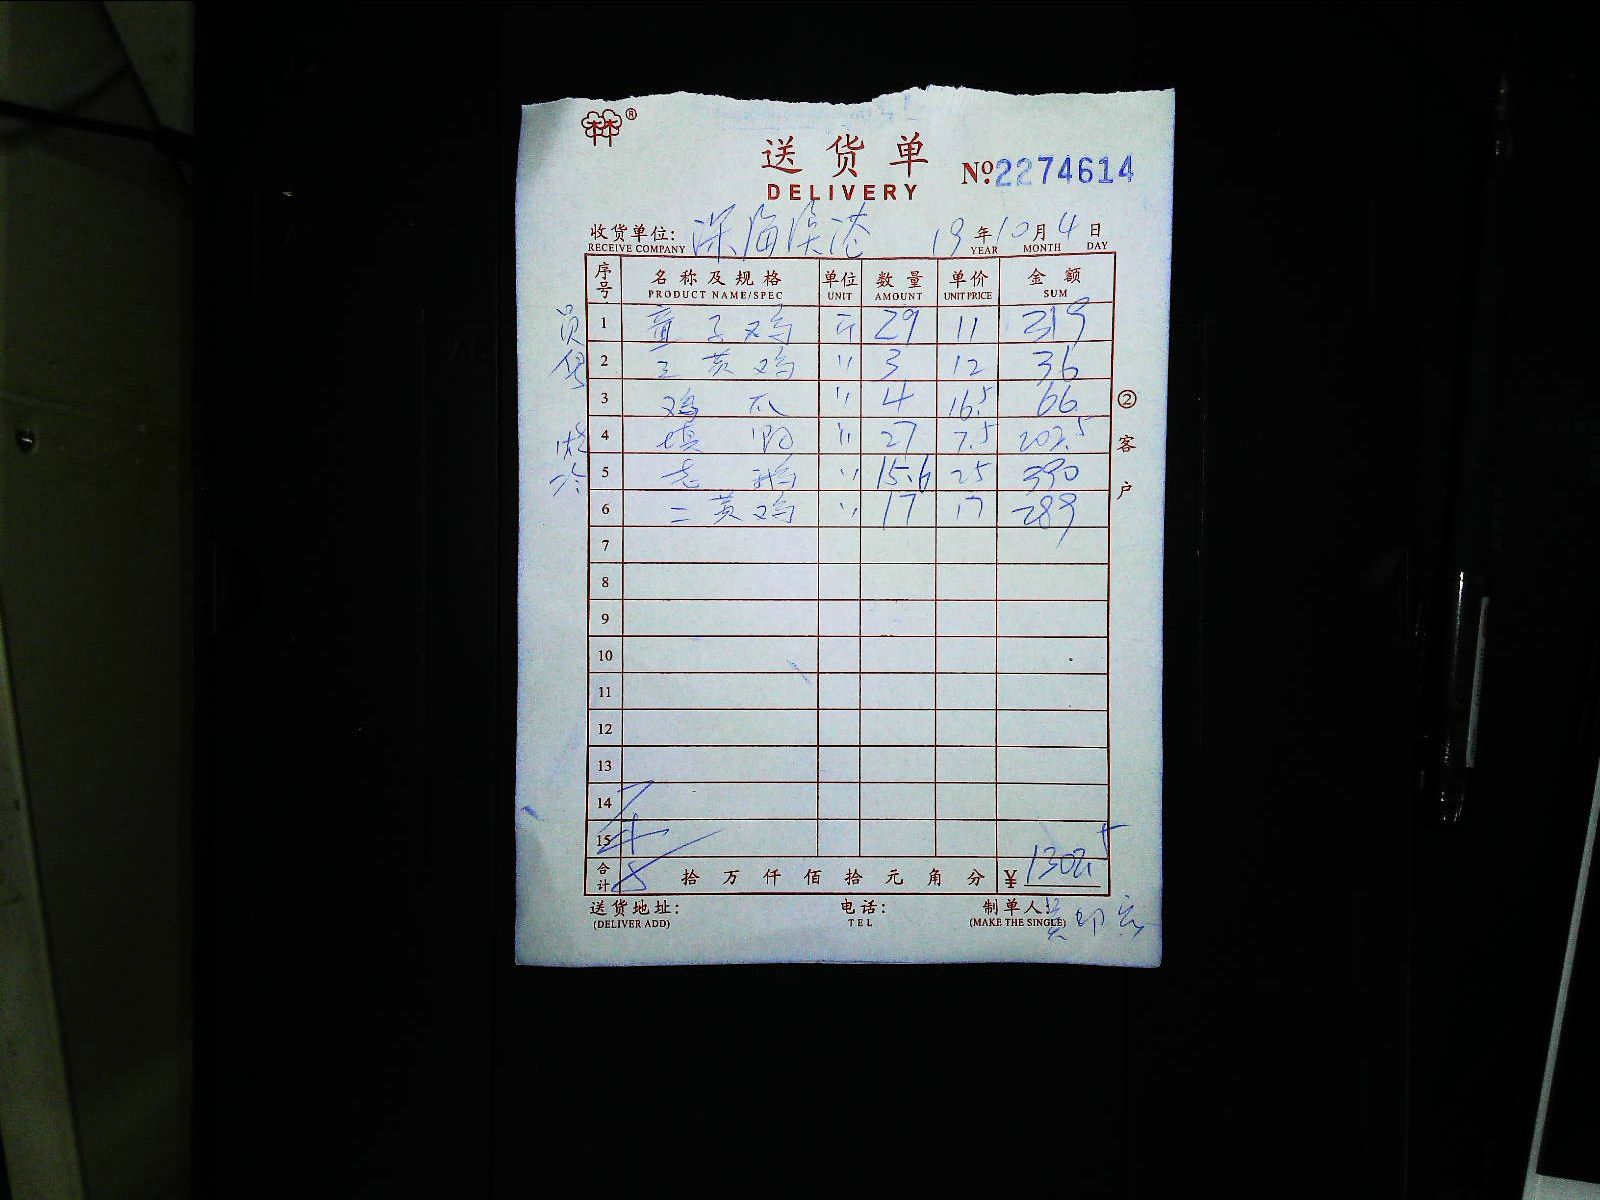 ®
送货单 №2274614
DELIVERY
收货单位: 深海渔港 19年10月4日
RECEIVE COMPANY YEAR MONTH DAY
序号 名称及规格 单位 数量 单价 金额
PRODUCT NAME/SPEC UNIT AMOUNT UNIT PRICE SUM
1 童子鸡 斤 29 11 319
2 三黄鸡 〃 3 12 36
3 鸡爪 〃 4 16.5 66
4 填鸭 〃 27 7.5 202.5
5 老鹅 〃 15.6 25 390
6 二黄鸡 〃 17 17 289
7
8
9
10
11
12
13
14
15
合计 拾万仟佰拾元角分 ¥1302.5
送货地址: 电话: 制单人:
(DELIVER ADD) TEL (MAKE THE SINGLE)
②客户
员
烧
冷